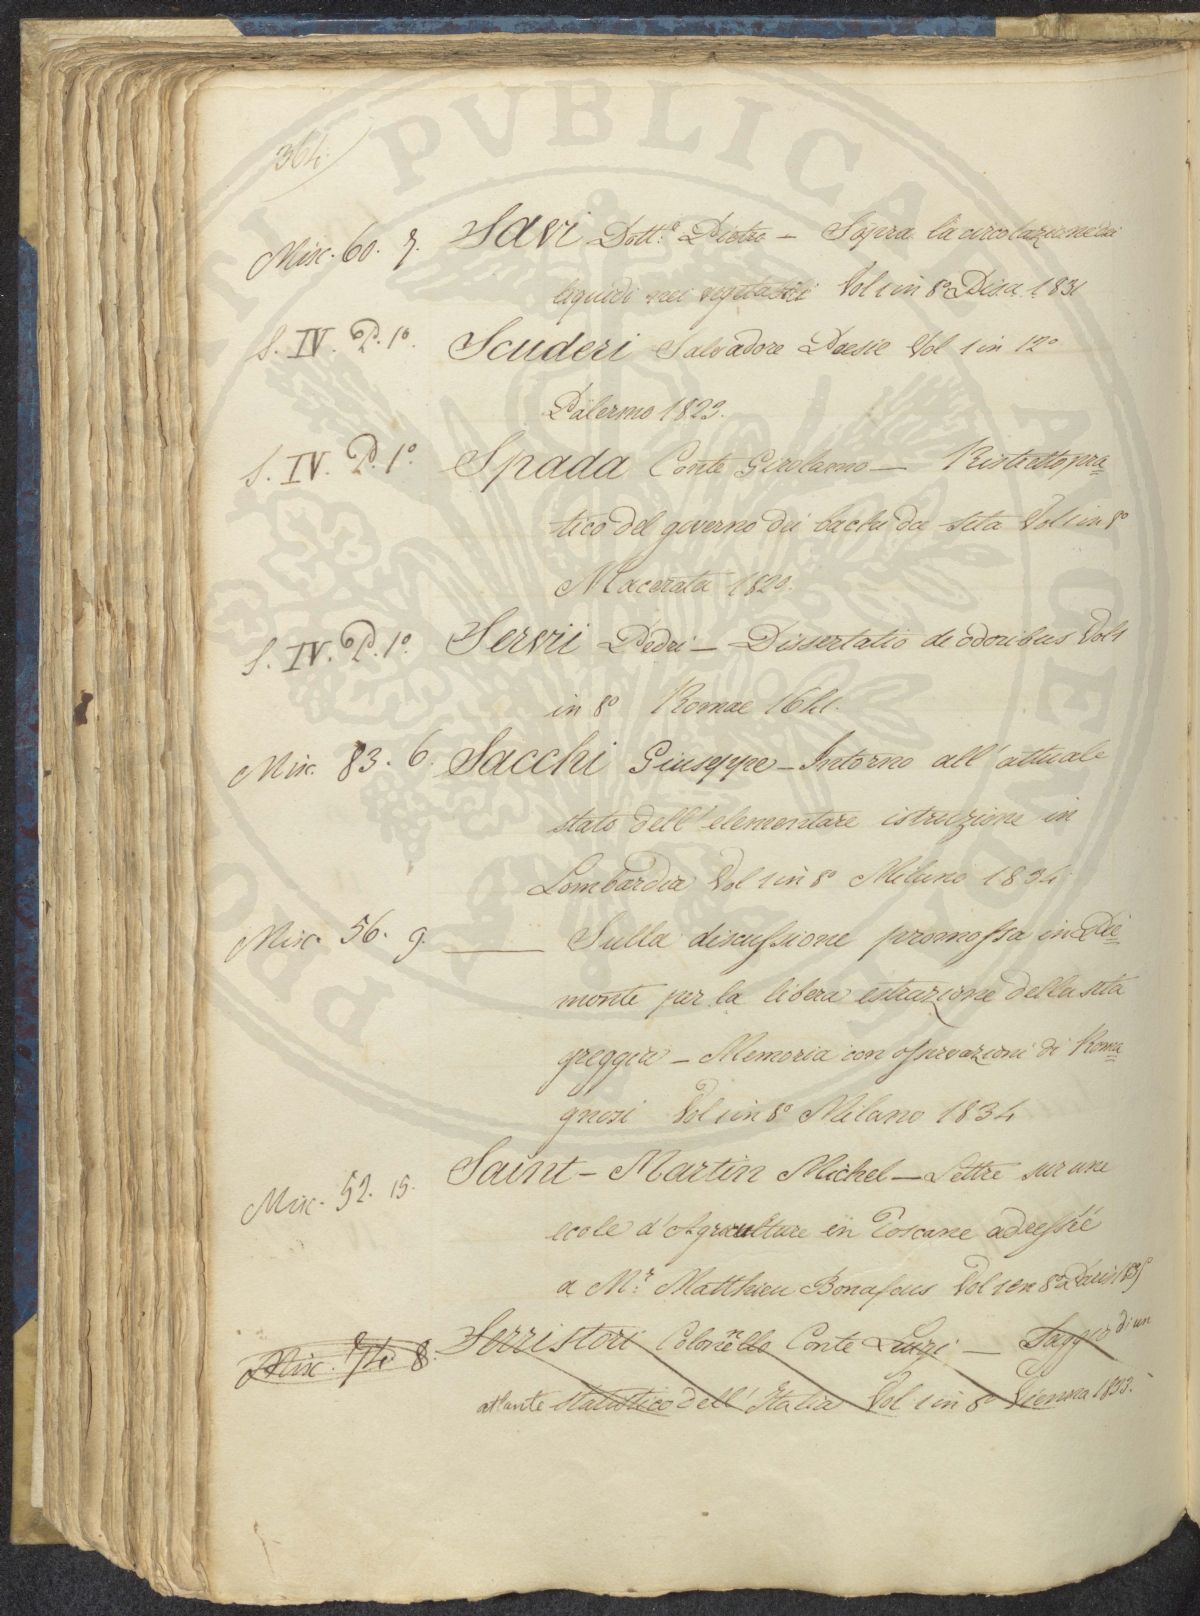 364.
Misc. 60. 7. Savi Dott.e Pietro — Sopra la circolazione dei
liquidi nei vegetabili Vol 1 in 8º Pisa 1831
S. IV. P. 1º. Scuderi Salvadore Poesie Vol 1 in 12º
Palermo 1823.
S. IV. P. 1º. Spada Conte Girolamo — Ristretto pra=
tico del governo dei bachi da seta Vol 1 in 8º
Macerata 1829.
S. IV. P. 1º. Servii Petri — Dissertatio de odoribus Vol 1
in 8º Romae 1641.
Misc. 83. 6. Sacchi Giuseppe — Intorno all' attuale
stato dell' elementare istruzione in
Lombardia Vol 1 in 8º Milano 1834
Misc. 56. 9. —— Sulla discussione promossa in Pie=
monte per la libera estrazione della seta
greggia — Memoria con osservazioni di Roma=
gnosi Vol 1 in 8º Milano 1834
Misc. 52. 15. Saint-Martin Michel — Lettre sur une
ecole d'Agriculture en Toscane adressée
a Mr. Matthieu Bonafous Vol 1 in 8º Paris 1835
Misc. 74. 8. Serristori Colonnello Conte Luigi — Saggio di un
atlante statistico dell' Italia Vol 1 in 8º Vienna 1833.
PROPVBLICAE FELICITATI